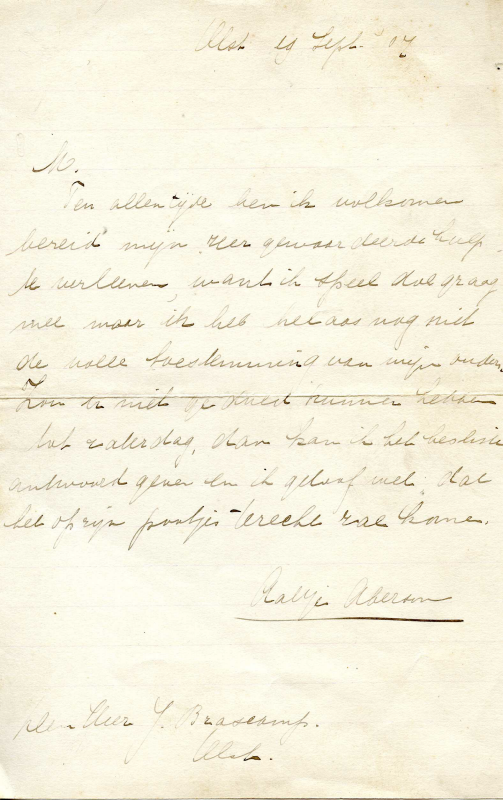 Olst 19 Sept. 07
M.
Ten allen tijde ben ik volkomen
bereid mijn zeer gewaardeerde hulp
te verleenen, want ik speel dol graag
mee maar ik heb helaas nog niet
de volle toestemming van mijn ouders.
Zou er niet op kunnen hebben
tot zaterdag, dan kan ik het besliste
antwoord geven en ik geloof wel, dat
het op zijn pootjes terecht zal kome.
Aaltje Aberson
Den Heer J. Brascamp.
Olst.